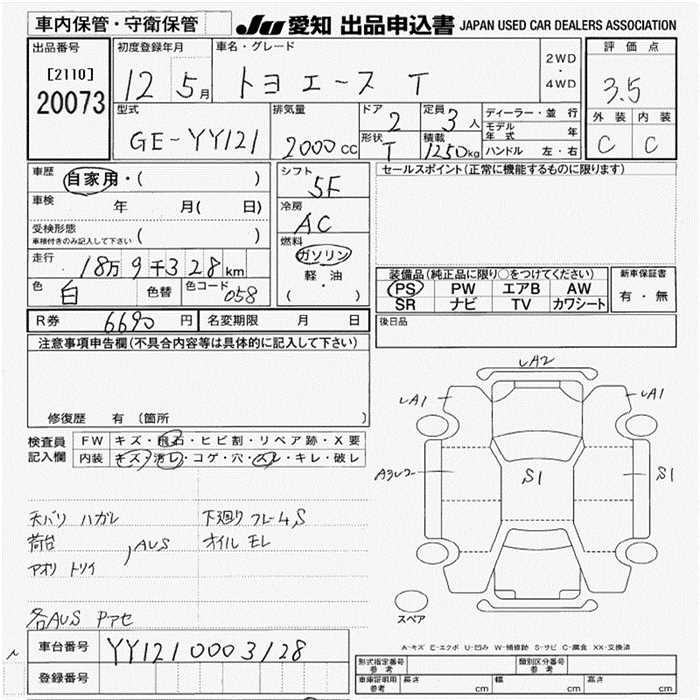 車内保管・守衛保管 JU 愛知 出品申込書 JAPAN USED CAR DEALERS ASSOCIATION
出品番号 初度登録年月 車名・グレード 2WD・4WD 評価点
[2110]
20073 12 5月 トヨエース T 3.5
型式 排気量 ドア 定員 ディーラー・並行 外装 内装
GE-YY121 2000cc 2 3人 モデル年式 年 C C
形状 積載 ハンドル 左・右
T 1250kg
車歴 自家用・( ) シフト セールスポイント(正常に機能するものに限ります)
5F
車検 年 月( 日) 冷房
AC
受検形態 ( ) 燃料
車検付きのみ記入して下さい ガソリン
走行 18万9千328km 軽・油 装備品(純正品に限り○をつけてください) 新車保証書
(・) PS PW エアB AW 有・無
色 白 色替 色コード 058 SR ナビ TV カワシート
R券 6690円 名変期限 月 日 後日品
注意事項申告欄(不具合内容等は具体的に記入して下さい)
修復歴 有 〔箇所 〕
A2
A1 A1
検査員 FW キズ・飛石・ヒビ割・リペア跡・X要
記入欄 内装 キズ・汚レ・コゲ・穴・スレ・キレ・破レ
S1 S1
天バリ ハガレ 下廻り フレームS
荷台 AUS オイルモレ
アオリ トリイ
各AUS Pアセ
スペア
A-キズ E-エクボ U-凹み W-補修跡 S-サビ C-腐食 XX-交換済
車台番号 YY1210003128
登録番号
形式指定番号 参考 類別区分番号 参考
車庫証明用 参考 長さ cm 幅 cm 高さ cm